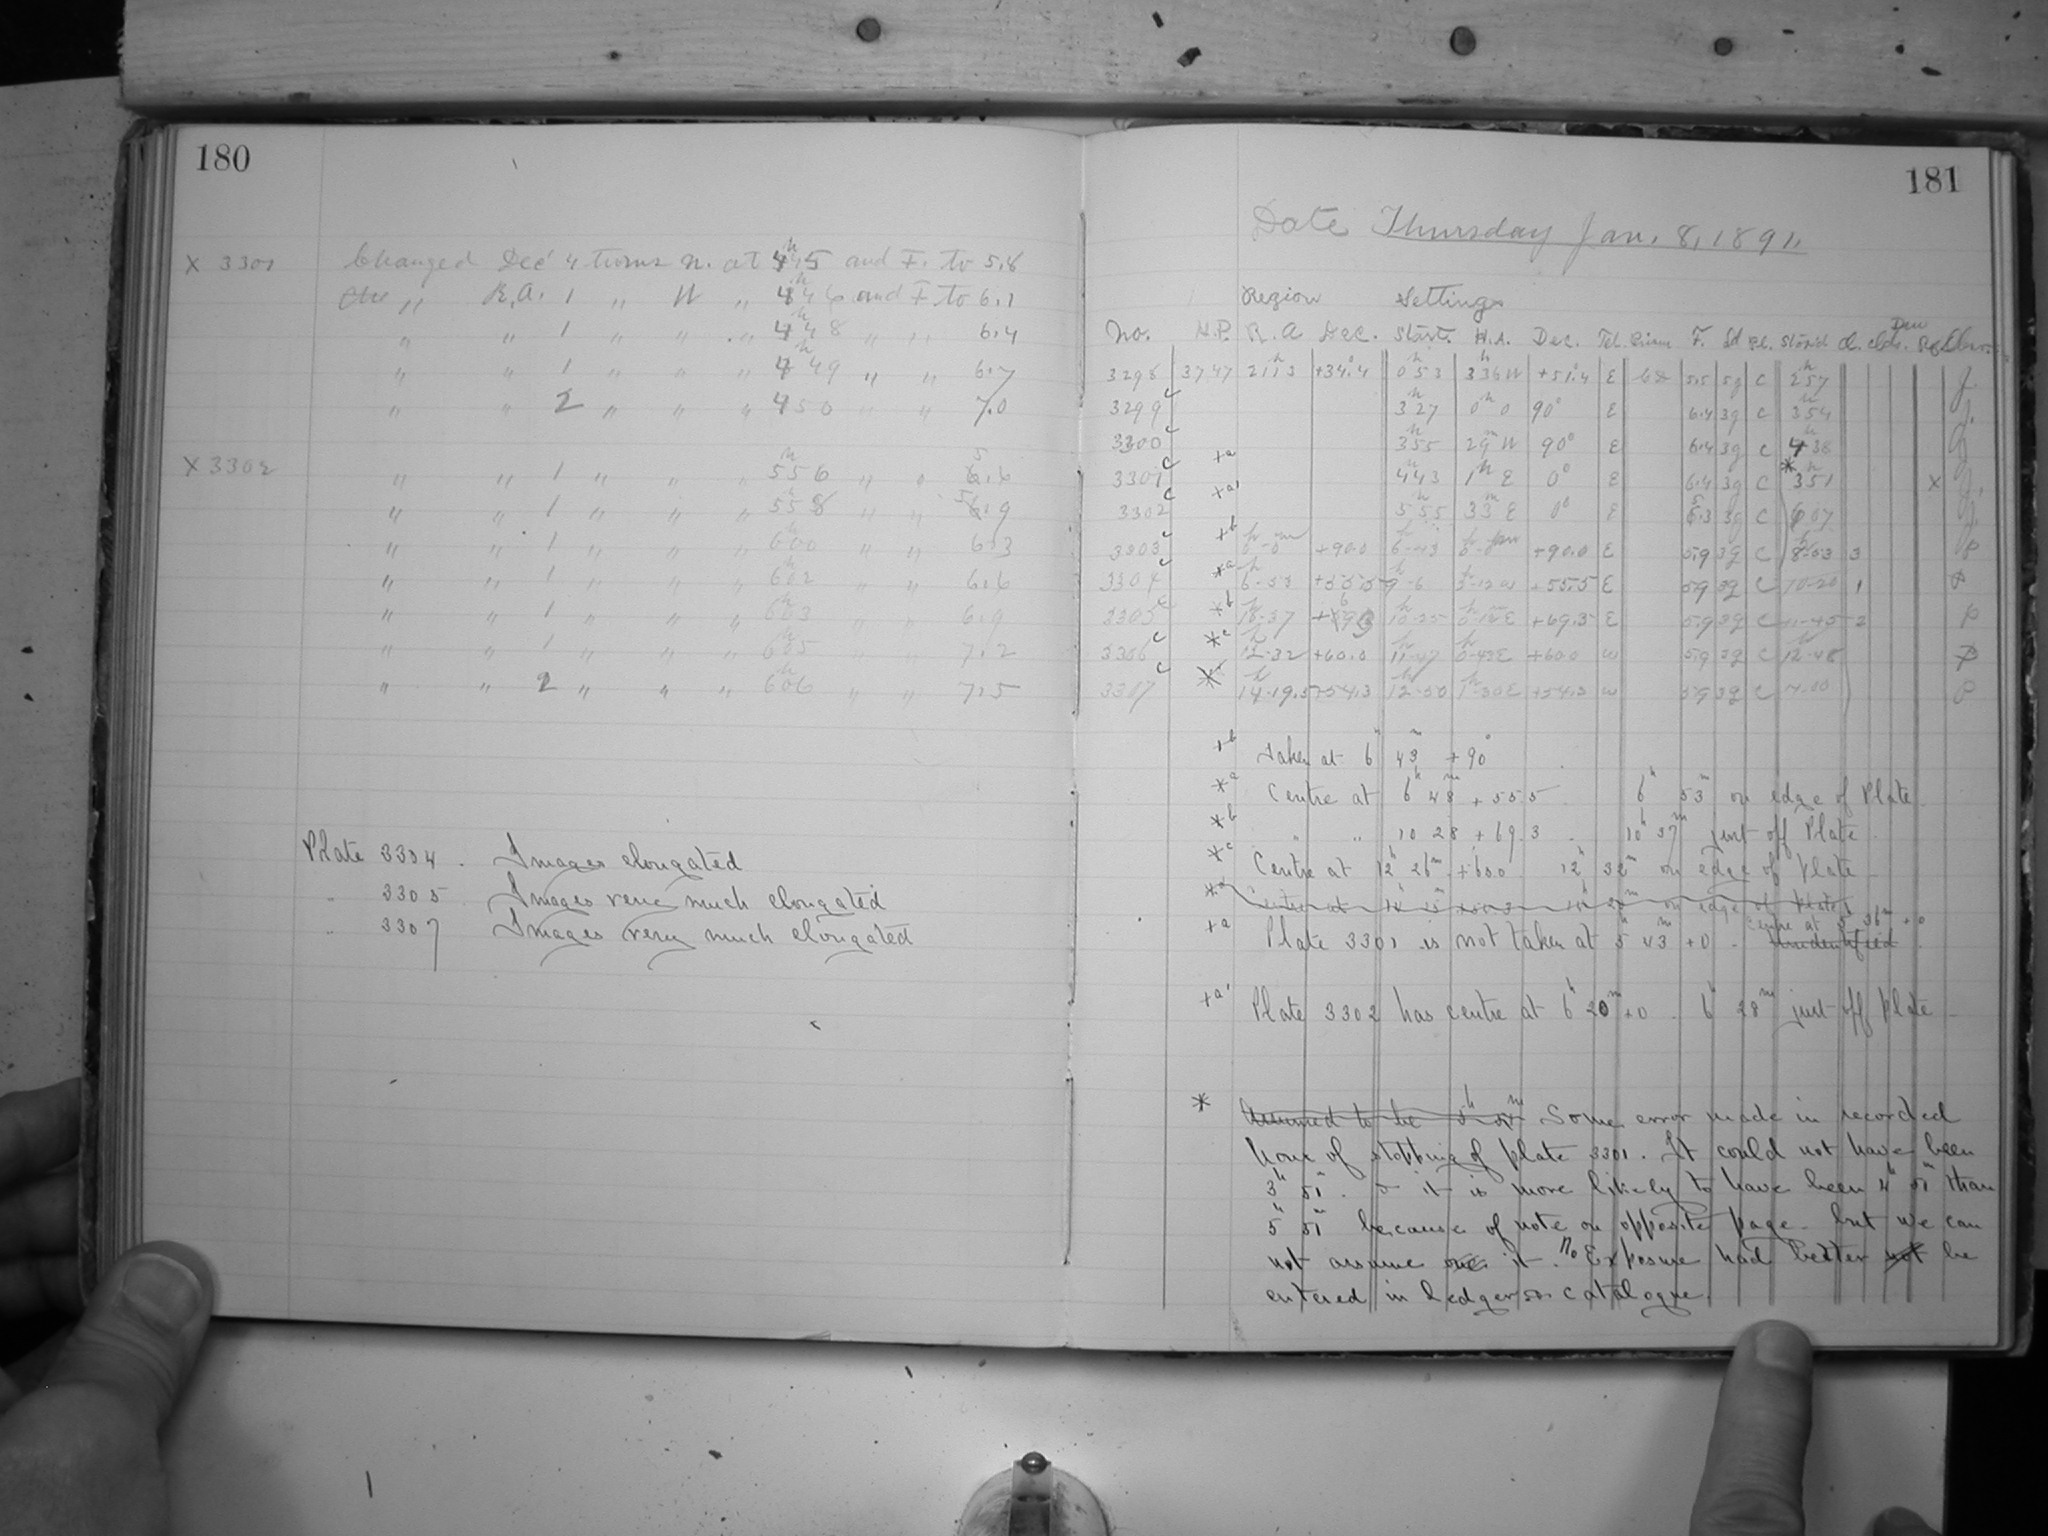 180
X 3301 Changed Dec 4 turns N. at 4h45 and F. to 5.8
" R.A. 1 " W " 4h46 and F to 6.1
" " 1 " " " 4h48 " " 6.4
" " 1 " " " 4h49 " " 6.7
" " 2 " " " 450 " " 7.0
X 3302 " " 1 " " " 5h56 " " 5.6
" " 1 " " " 5h58 " " 5.9
" " 1 " " " 6h00 " " 6.3
" " 1 " " " 6h02 " " 6.6
" " 1 " " " 6h03 " " 6.9
" " 1 " " " 6h05 " " 7.2
" " 2 " " " 6h06 " " 7.5
Plate 3304. Images elongated
" 3305. Images very much elongated
" 3307 Images very much elongated
181
Date Thursday Jan. 8, 1891.
Region Settings
No. H.P. R.A Dec. Start. H.A. Dec. Tel. F. Stop'd Cl.
3298 3747 21h13 +34°.4 0h53 3h36W +51°.4 E 5.5 5g C J.
3299c 3h27 0h0 90° E 6.4 3g C 3h54 J.
3300c 3h55 29m W 90° E 6.4 3g C 4h38 J.
3301c +a 4h43 1h E 0° E 6.4 3g C *3h51 x J.
3302c +a' 5h55 33m E 0° E 3g C 607 J.
3303c +b +90.0 +90.0 E 5.9 3g C 8.03 3 P
3304c *a +55.5 9-6 +55.5 E 5.9 3g C 10-20 1 P
3305c *b 10-25 +69.3 E 5.9 3g C 11-45 2 P
3306c *c 12-32 +60.0 11-47 0-43E +60.0 W 5.9 3g C 12-48 P
3307c 14-19.5 +54.3 12-50 1-30E +54.3 W 5.9 3g C P
+b Taken at 6h 43m +90°
*a Centre at 6h 48m +55.5 6h 53m on edge of Plate.
*b " " 10 28 +69.3. 10h 37m just off Plate.
*c Centre at 12h 26m +60.0. 12h 32m on edge of Plate.
on edge of Plate
Centre at 5h 36m +0
+a Plate 3301 is not taken at 5h 43m +0. unidentified
+a' Plate 3302 has centre at 6h 20m +0. 6h 28m just off Plate.
* Assumed to be 5h 51m Some error made in recorded
hour of stopping of plate 3301. It could not have been
3h 51m. & it is more likely to have been 4h 51m than
5h 51m because of note on opposite page. but we can
not assume it. No Exposure had better not be
entered in Ledger or catalogue.